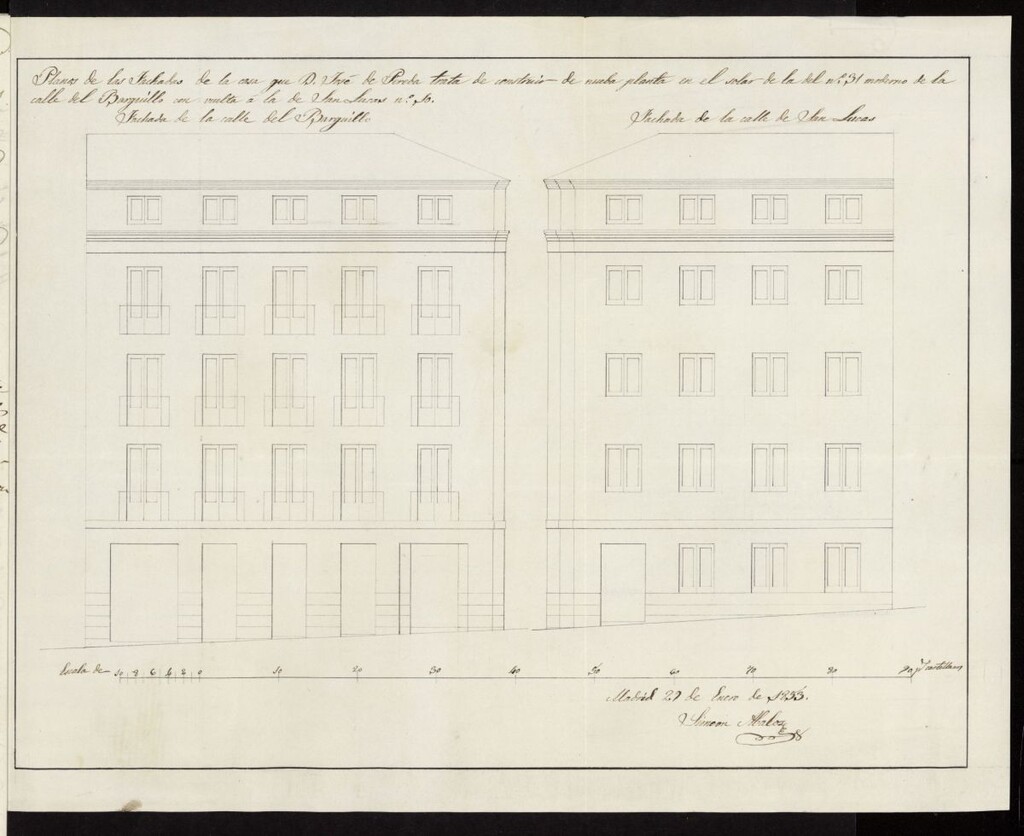 Planos de las Fachadas de la casa que D. José de Pineda trata de construir de nueba planta en el solar de la del nº 31 moderno de la
calle del Barquillo con vuelta á la de San Lucas nº
Fachada de la calle del Barquillo
Fachada de la calle de San Lucas
Escala de 10 8 6 4 2 0 10 20 30 40 50 60 70 80 90 ps castellanos
Madrid 27 de Enero de
Simeon